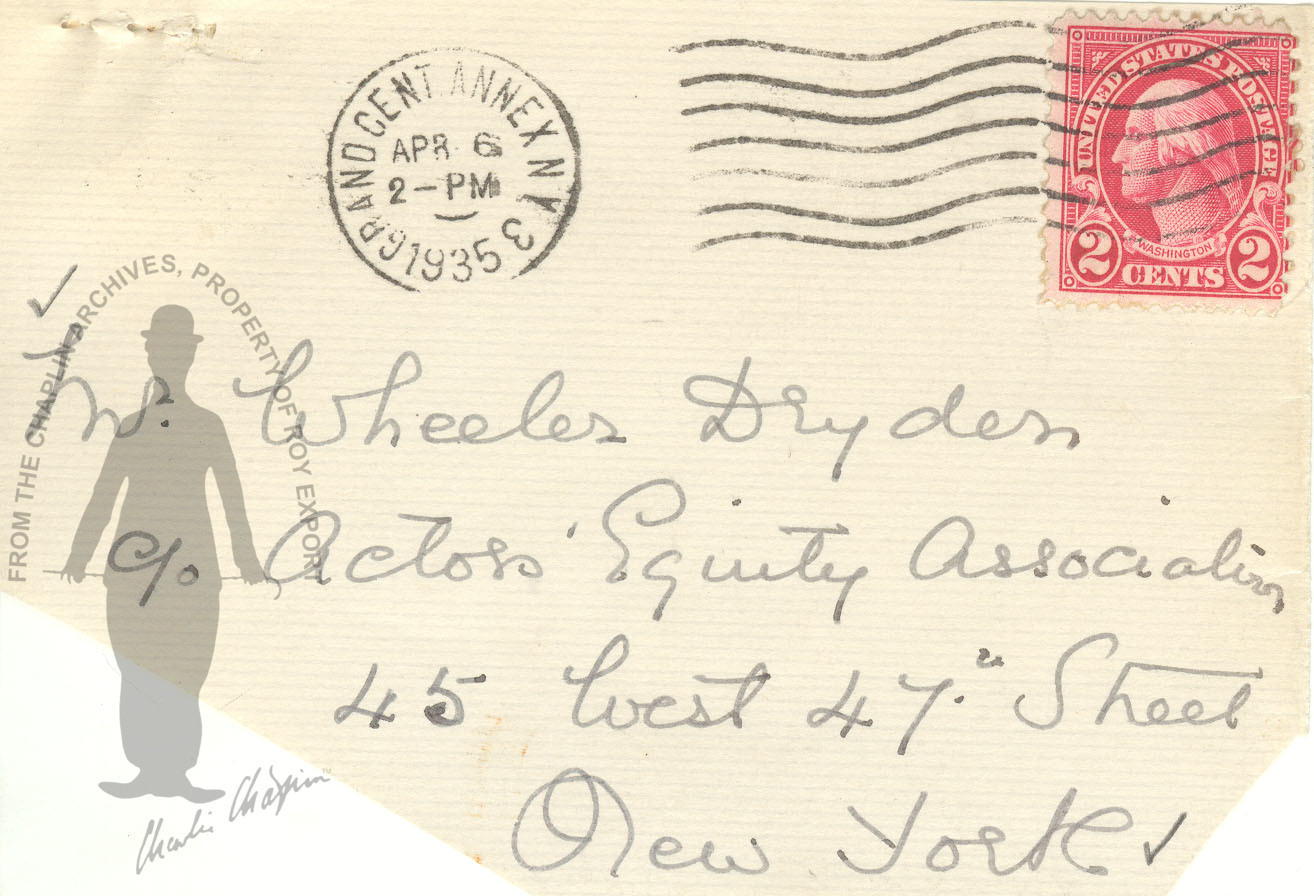 GRAND CENT. ANNEX N.Y. 3
APR 6
2-PM
1935
UNITED STATES POSTAGE
WASHINGTON
2 CENTS 2
FROM THE CHAPLIN ARCHIVES, PROPERTY OF ROY EXPORT
Mr. Wheeler Dryden
c/o Actors' Equity Association
45 West 47th Street
New York
Charlie Chaplin